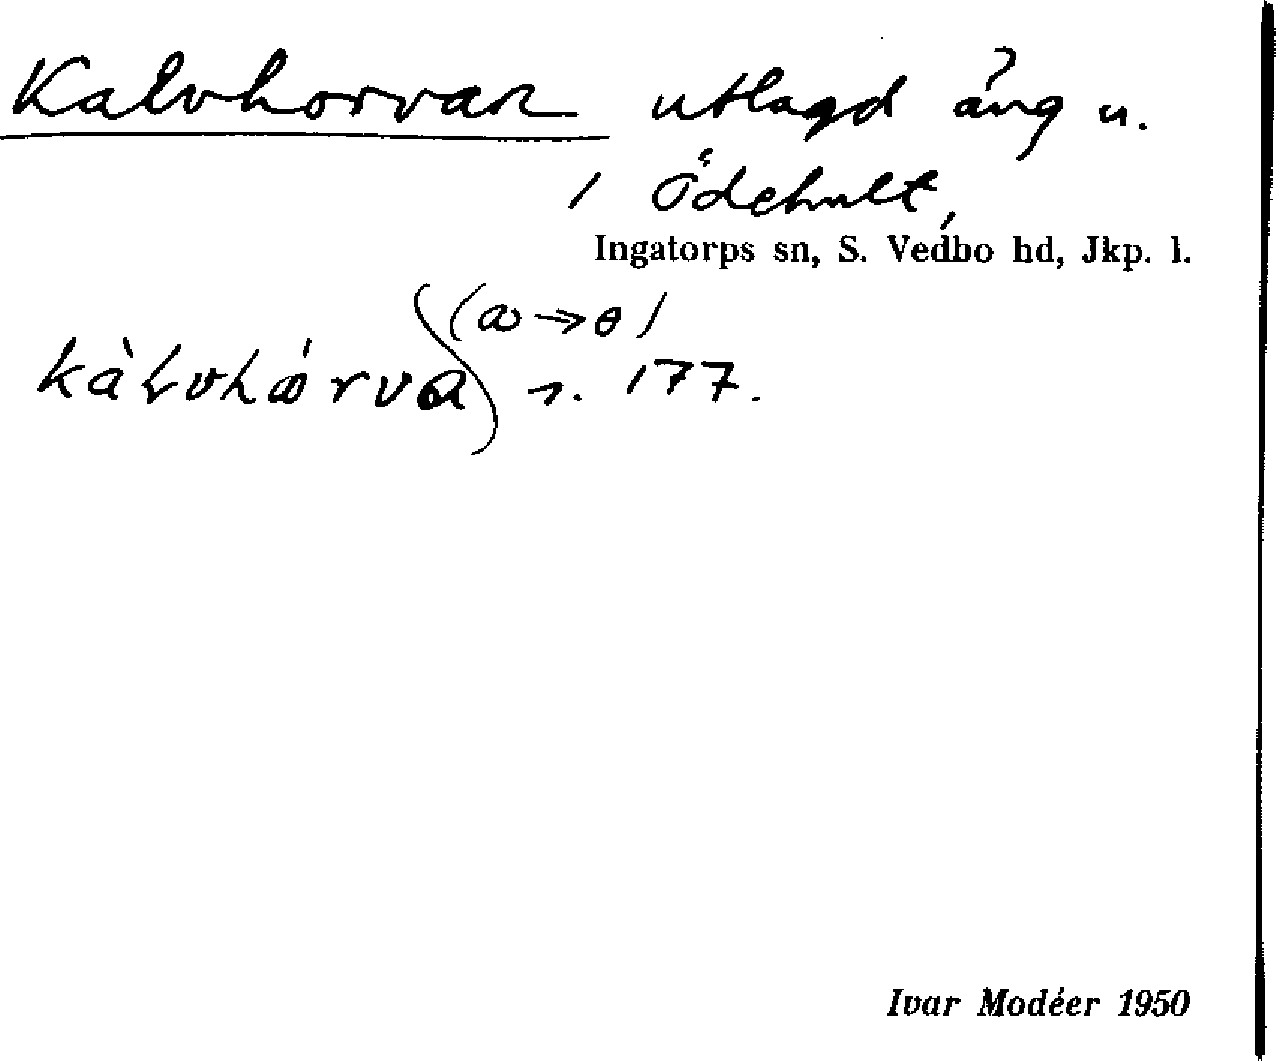 Kalvhorvan utlagd äng u.
1 Ödehult,
Ingatorps sn, S. Vedbo hd, Jkp. l.
(ꝏ→ɵ)
s. 177.
Ivar Modéer 1950